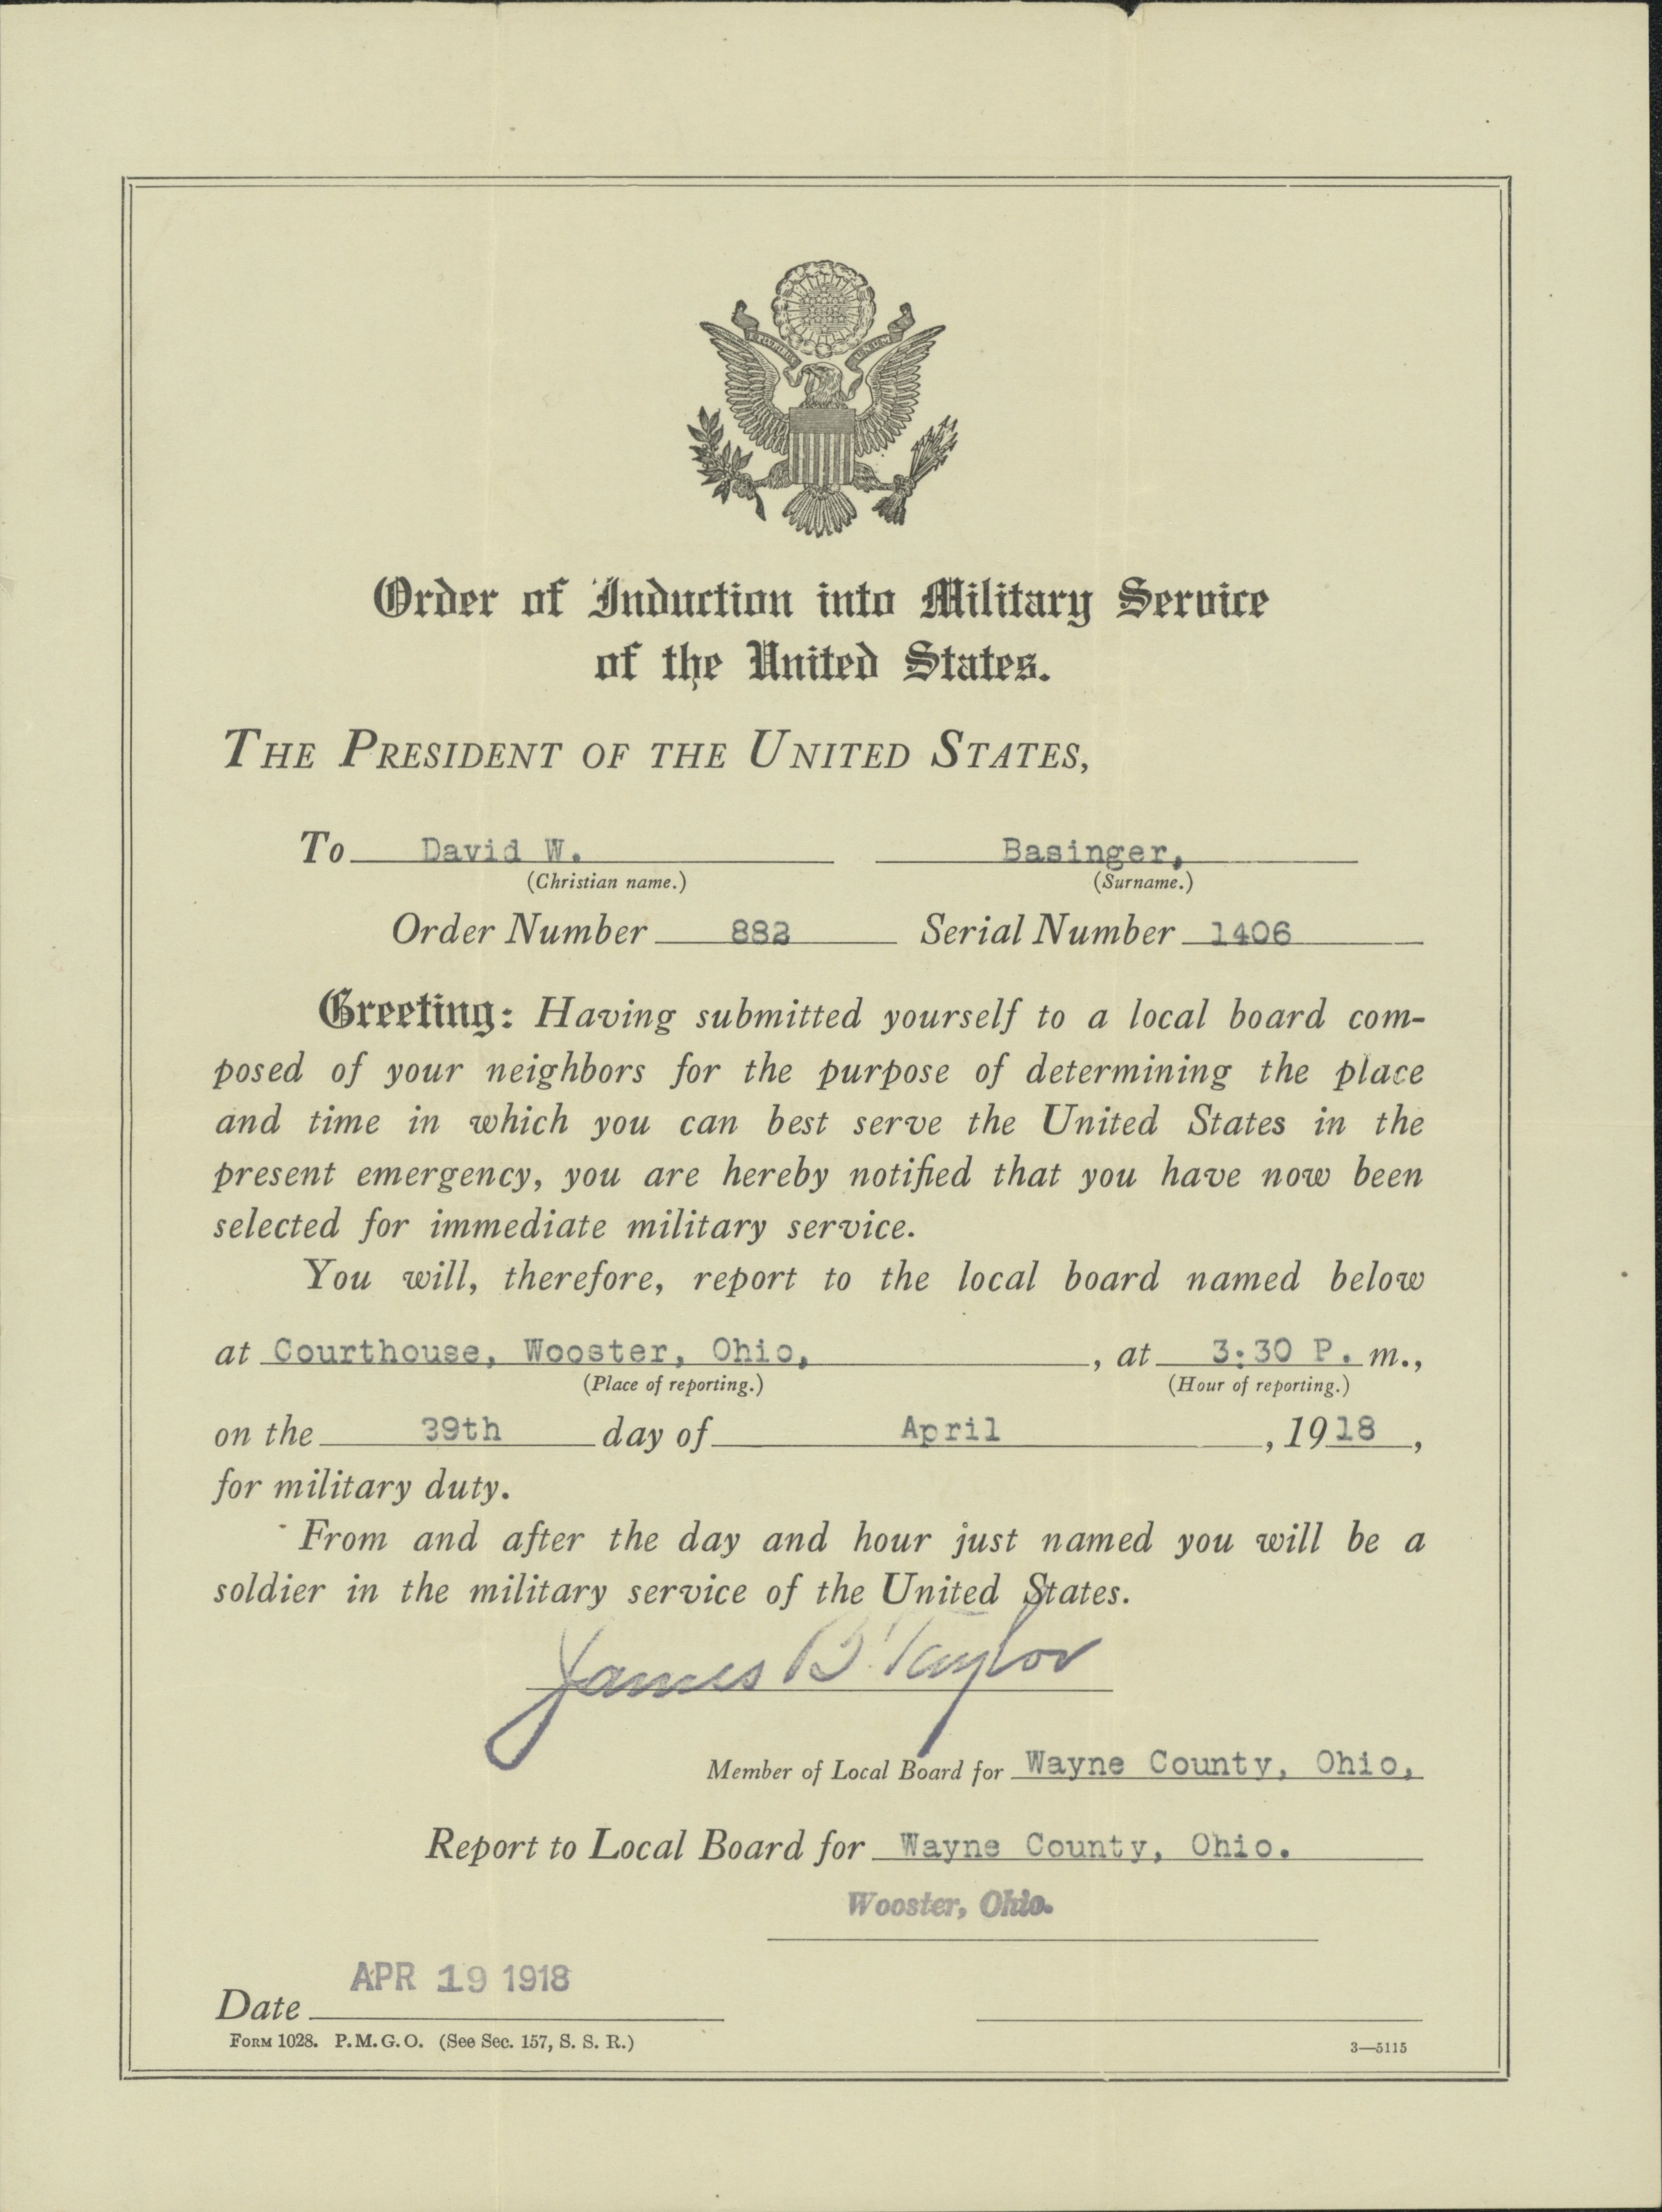 Order of Induction into Military Service
of the United States.
THE PRESIDENT OF THE UNITED STATES,
To David W. Basinger,
(Christian name.) (Surname.)
Order Number 882 Serial Number 1406
Greeting: Having submitted yourself to a local board com-
posed of your neighbors for the purpose of determining the place
and time in which you can best serve the United States in the
present emergency, you are hereby notified that you have now been
selected for immediate military service.
You will, therefore, report to the local board named below
at Courthouse, Wooster, Ohio, , at 3:30 P. m.,
(Place of reporting.) (Hour of reporting.)
on the 29th day of April , 1918 ,
for military duty.
From and after the day and hour just named you will be a
soldier in the military service of the United States.
James B Taylor
Member of Local Board for Wayne County, Ohio,
Report to Local Board for Wayne County, Ohio.
Wooster, Ohio.
APR 19 1918
Date
FORM 1028. P. M. G. O. (See Sec. 157, S. S. R.) 3—5115